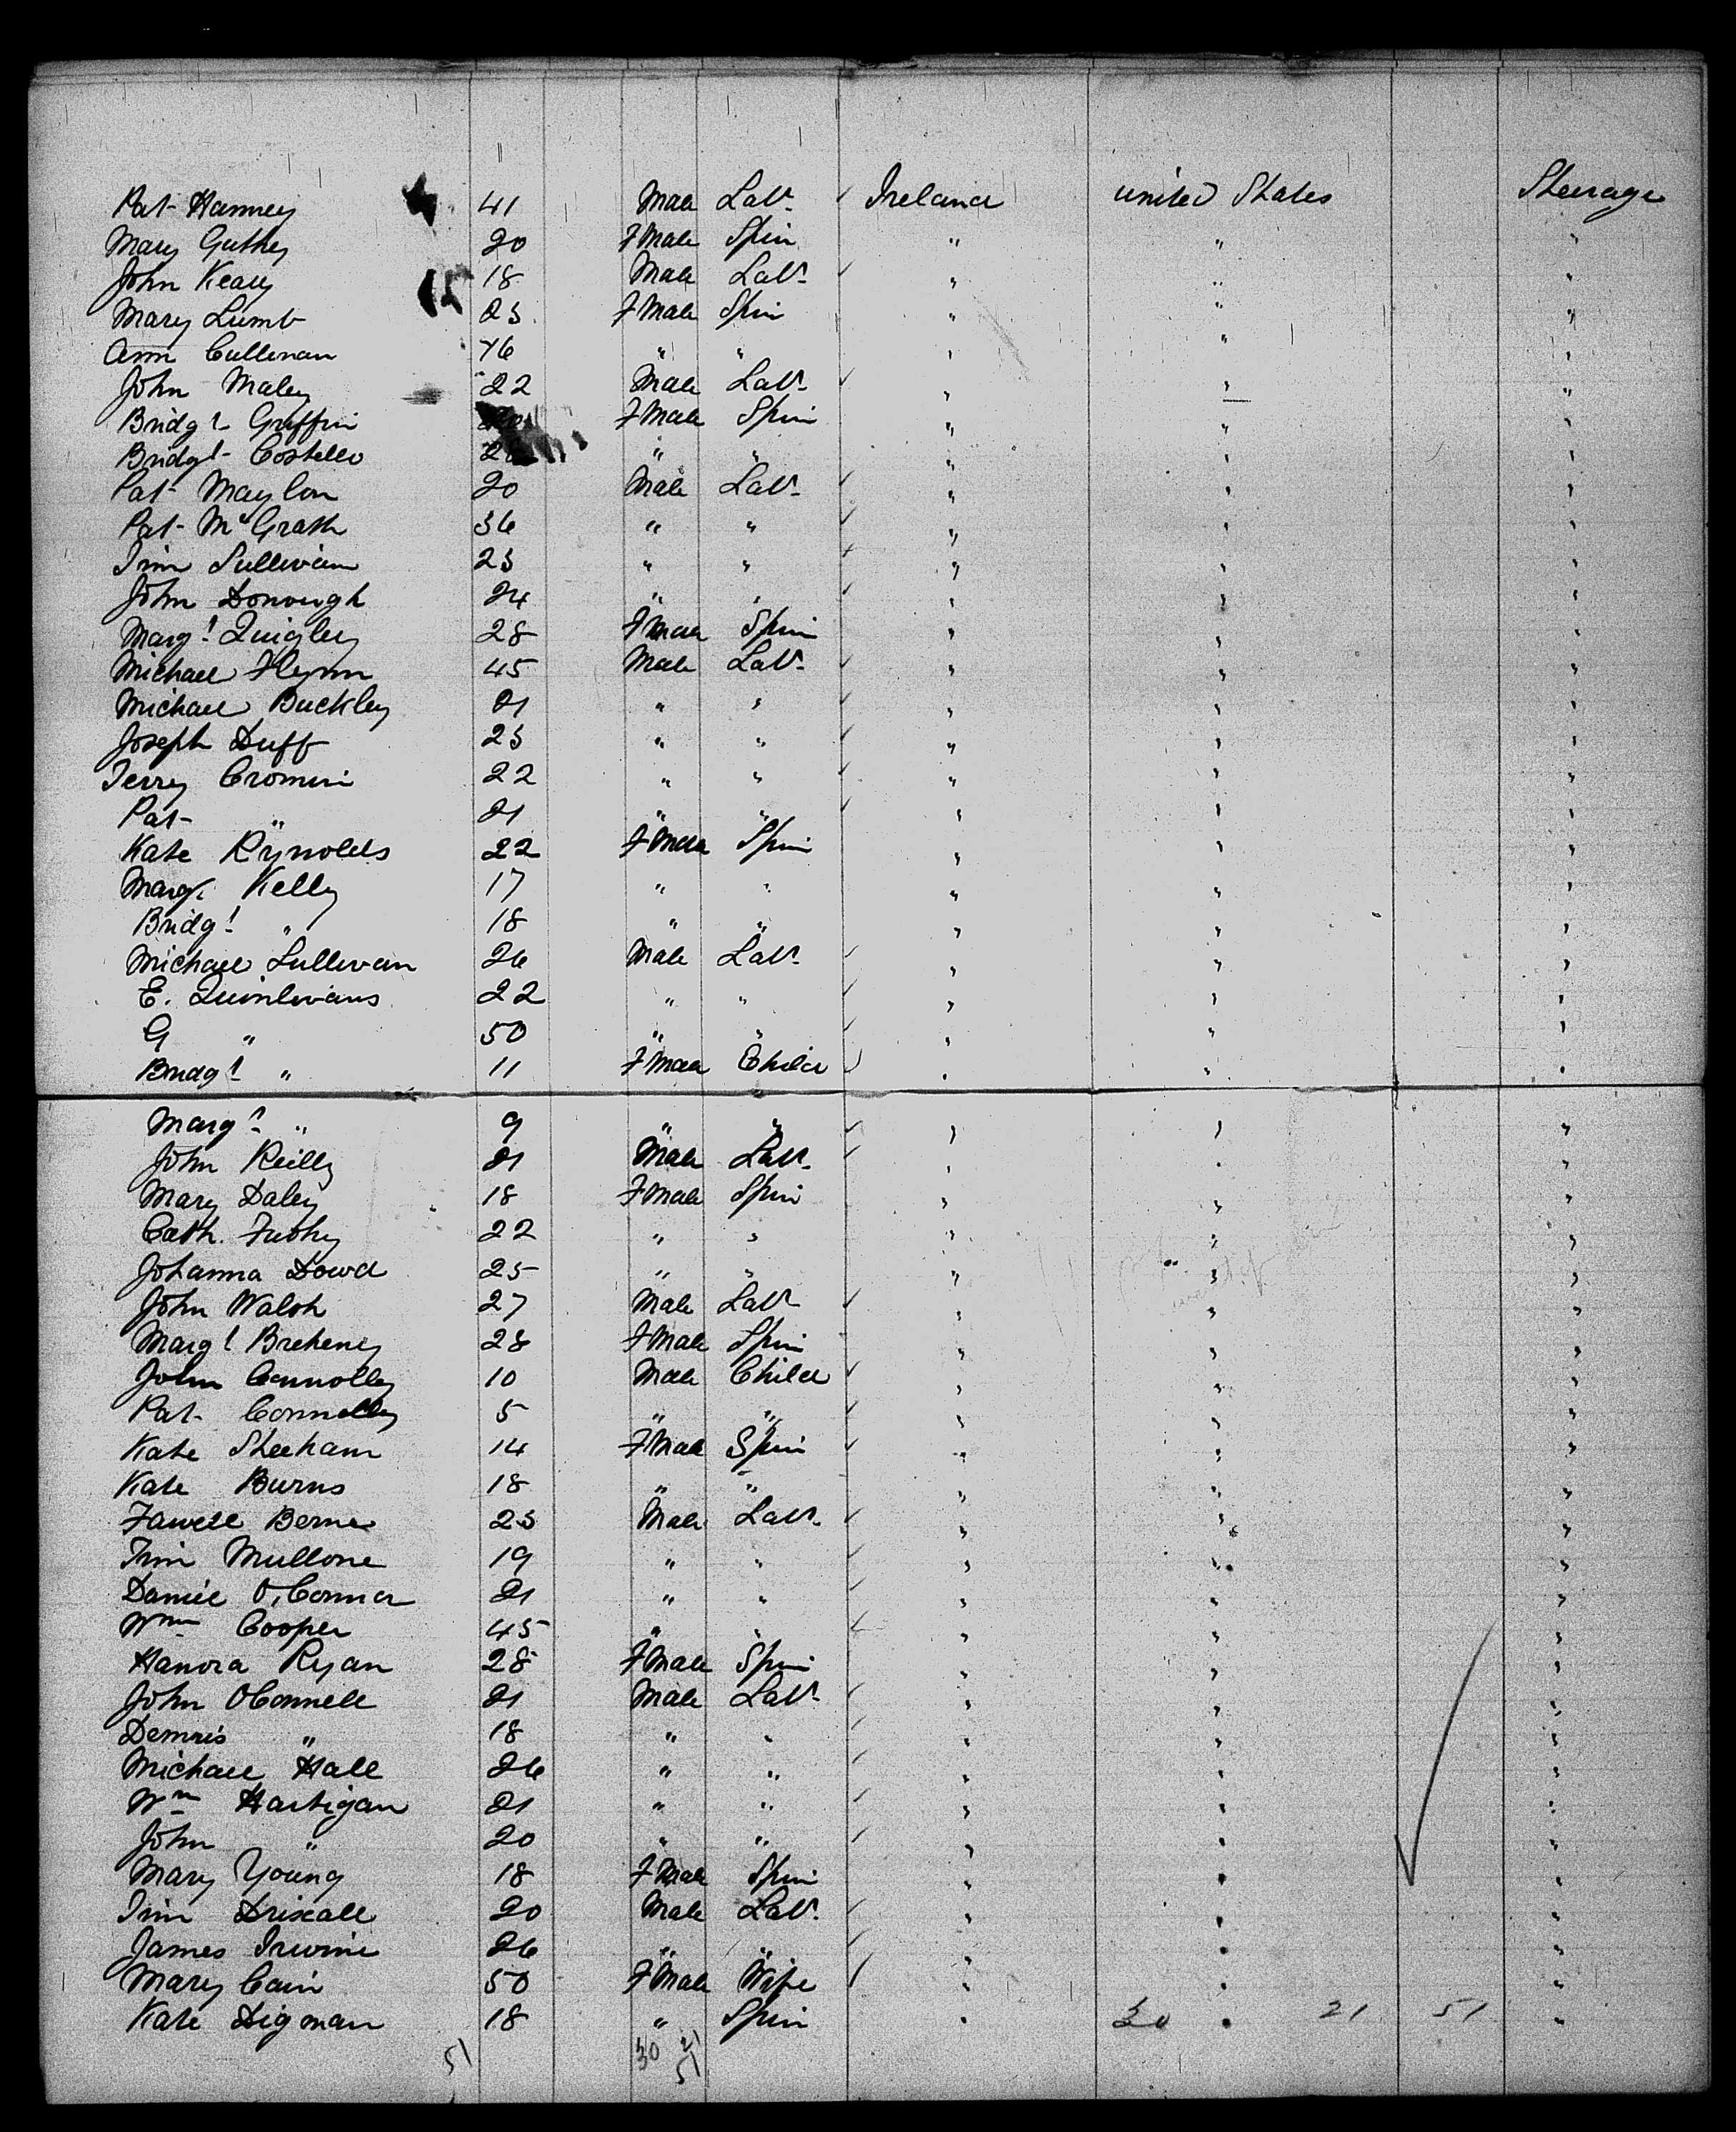 Pat Hanney 41 Male Labr Ireland United States Steerage
Mary Guthey 20 FMale Spin " " "
John Keary 18 Male Labr " " "
Mary Lumb 23 FMale Spin " " "
Ann Cullenan " " " " "
John Maley 22 Male Labr " " "
Bridgt Griffin FMale Spin " " "
Bridgt Costello " " " " "
Pat Maylon 20 Male Labr " " "
Pat McGrath 36 " " " " "
Tim Sullivan 23 " " " " "
John Donough 24 " " " " "
Margt Quigley 28 FMale Spin " " "
Michael Flynn 45 Male Labr " " "
Michael Buckley 21 " " " " "
Joseph Duff 23 " " " " "
Terry Cronin 22 " " " " "
Pat " 21 " " " " "
Kate Rynolds 22 FMale Spin " " "
Margt Kelly 17 " " " " "
Bridgt " 18 " " " " "
Michael Sullivan 26 Male Labr " " "
E. Quinlivans 22 " " " " "
G " 50 " " " " "
Bridgt " 11 FMale Child " " "
Margt " 9 " " " " "
John Reilly 21 Male Labr " " "
Mary Daley 18 FMale Spin " " "
Cath. 22 " " " " "
Johanna Dowd 25 " " " " "
John Walsh 27 Male Labr " " "
Margt Breheney 28 FMale Spin " " "
John Connolly 10 Male Child " " "
Pat Connolly 5 " " " " "
Kate Sheehan 14 FMale Spin " " "
Kate Burns 18 " " " " "
Berne 23 Male Labr " " "
Tim Mullone 19 " " " " "
Daniel O'Connor 21 " " " " "
Wm Cooper 45 " " " " "
Hanora Ryan 28 FMale Spin " " "
John OConnell 21 Male Labr " " "
Dennis " 18 " " " " "
Michael Hall 26 " " " " "
Wm Hartigan 21 " " " " "
John " 20 " " " " "
Mary Young 18 FMale Spin " " "
Tim Driscall 20 Male Labr " " "
James Irwine 26 " " " " "
Mary Cain 50 FMale Wife " " "
Kate Digman 18 " Spin " 30 " 21 51 "
51 30 21
51